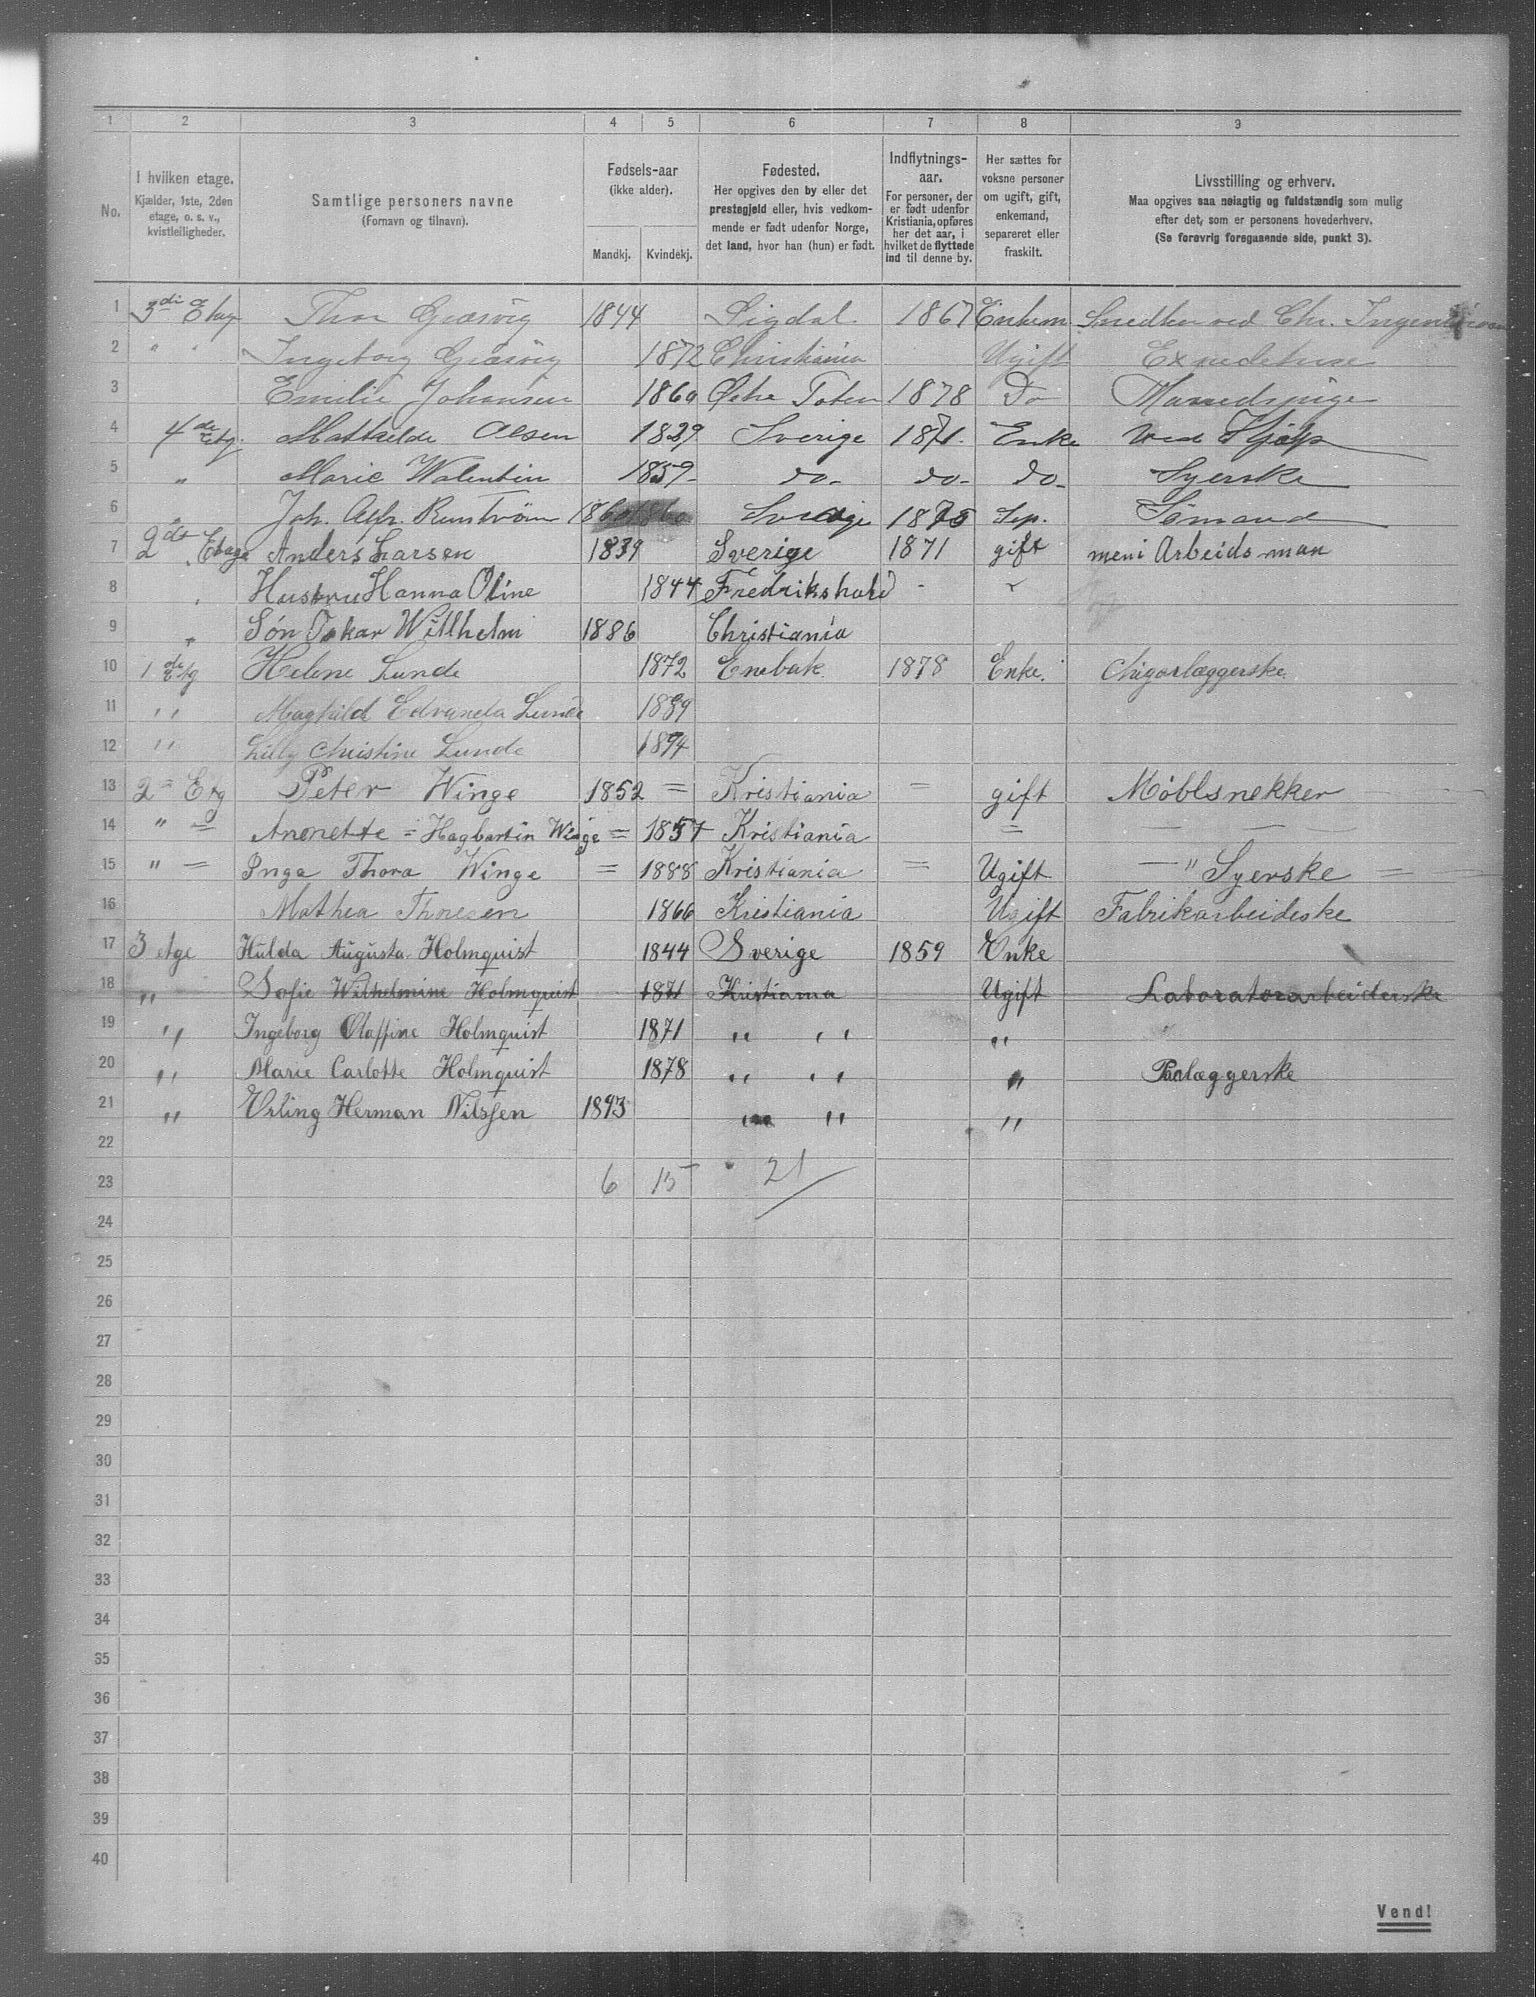 1 2 3 4 5 6 7 8 9
No. I hvilken etage. Kjælder, 1ste, 2den etage, o. s. v., kvistleiligheder. Samtlige personers navne (Fornavn og tilnavn). Fødsels-aar (ikke alder). Mandkj. Kvindekj. Fødested. Her opgives den by eller det prestegjeld eller, hvis vedkommende er født udenfor Norge, det land, hvor han (hun) er født. Indflytnings-aar. For personer, der er født udenfor Kristiania, opføres her det aar, i hvilket de flyttede ind til denne by. Her sættes for voksne personer om ugift, gift, enkemand, separeret eller fraskilt. Livsstilling og erhverv. Maa opgives saa nøiagtig og fuldstændig som mulig efter det, som er personens hovederhverv. (Se forøvrig foregaaende side, punkt 3).
1 3di Etag Thor 1844 Sigdal 1867 Enkem Snedker ved Chr.
2 " " Ingeborg 1872 Christiania Ugift
3 Emilie Johansen 1860 Østre Toten 1878 Do
4 4de Etg. Mathilde Olsen 1829 Sverige 1871. Enke ved Hjælp
5 " Marie Walentin 1859 - do - do - do - Syerske
6 " Joh. Alfr. Runström 1860 Sverige 1875 Sep. Sømand
7 2de Etage Anders Larsen 1839 Sverige 1871 gift meni Arbeidsman
8 " Hustru Hanna Oline 1844 Fredrikshald - "
9 " Søn Oskar Willhelm 1886 Christiania
10 1de Etg Helene Lunde 1872 Enebak 1878 Enke. Chigarlæggerske
11 " Maghild Edvarda Lunde 1889
12 " Lilly Christine Lunde 1894
13 2= Etg Peter Winge 1852 = Kristiania = gift Møblsnekker
14 " = Annette = Hagbartin Winge = 1857 Kristiania = — — —
15 " — Inga Thora Winge = 1888 Kristiania = Ugift — " Syerske =
16 Mathea Thoresen 1866 Kristiania Ugift Fabrikarbeideske
17 3 Age Hulda Augusta Holmquist 1844 Sverige 1859 Enke
18 " Sofie Wilhelmine Holmquist 1871 Kristiania Ugift Laboratorarbeiderske
19 " Ingeborg Olaffine Holmquist 1871 " " "
20 " Marie Carlotte Holmquist 1878 " " " Paalæggerske
21 " Erling Herman Nilssen 1893 " " "
22
23 6 15 21
24
25
26
27
28
29
30
31
32
33
34
35
36
37
38
39
40
Vend!